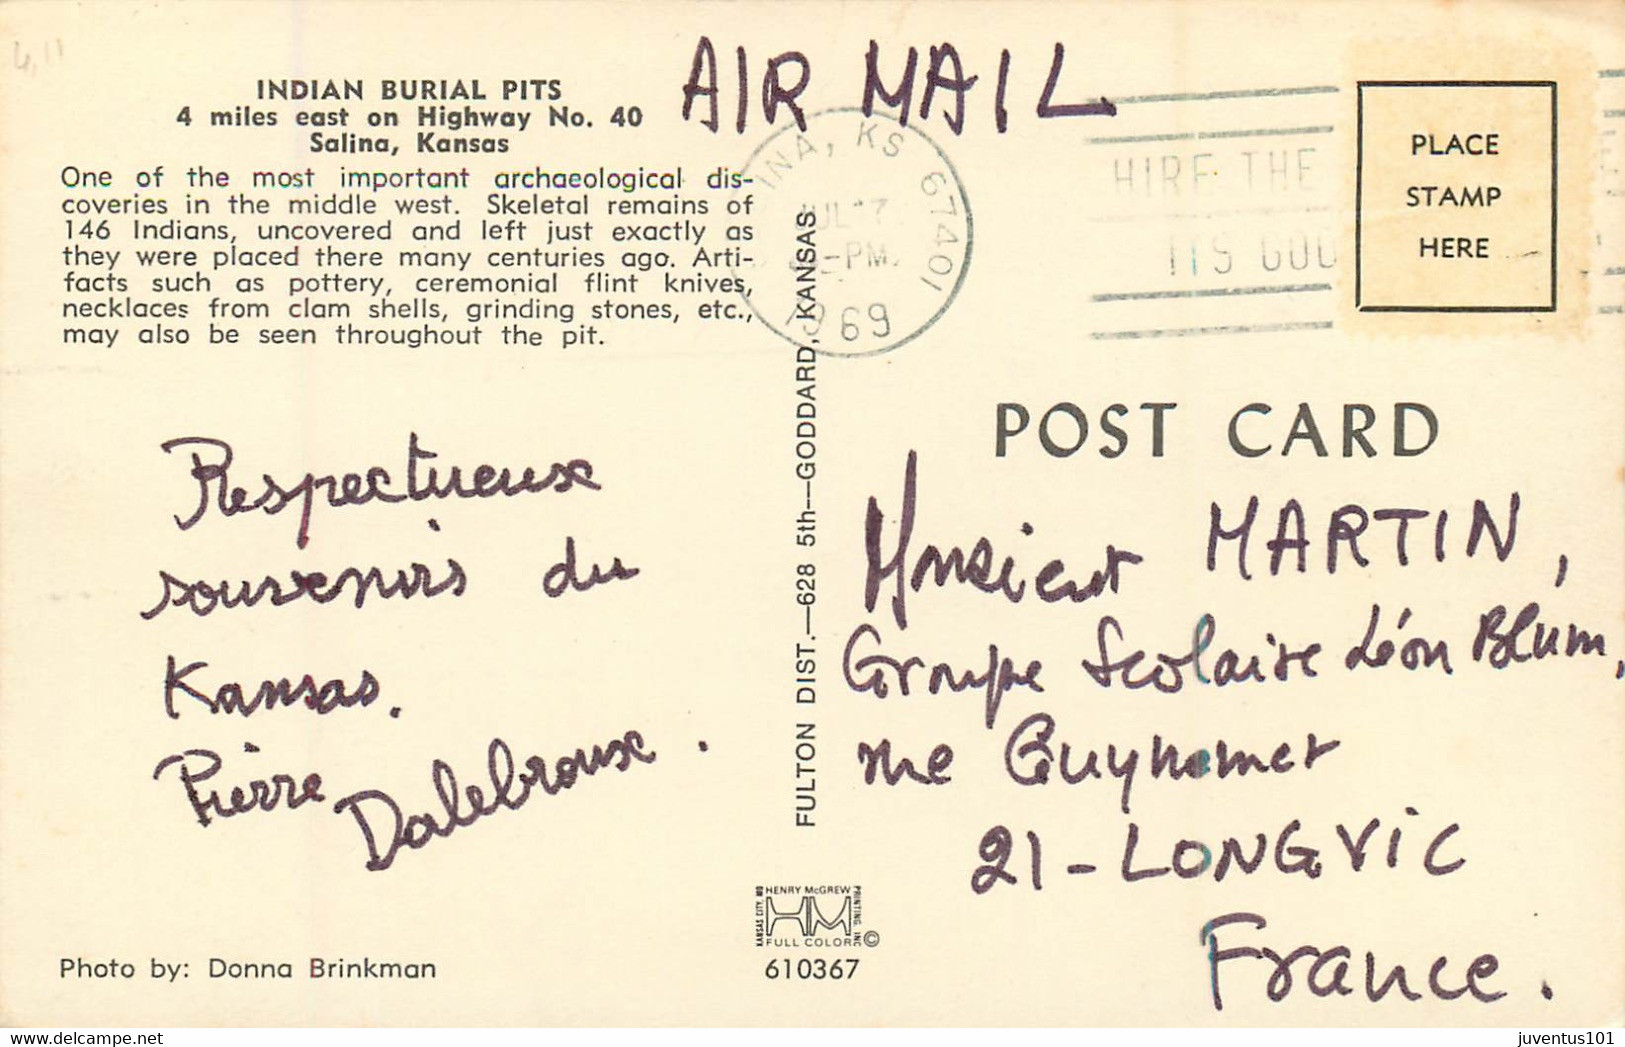 4,11
INDIAN BURIAL PITS
4 miles east on Highway No. 40
Salina, Kansas
One of the most important archaeological dis-
coveries in the middle west. Skeletal remains of
146 Indians, uncovered and left just exactly as
they were placed there many centuries ago. Arti-
facts such as pottery, ceremonial flint knives,
necklaces from clam shells, grinding stones, etc.,
may also be seen throughout the pit.
Respectueux
souvenirs du
Kansas.
Pierre Dalebroux.
Photo by: Donna Brinkman
FULTON DIST.—628 5th—GODDARD, KANSAS
HENRY McGREW
PRINTING, INC
KANSAS CITY, MO
HM
FULL COLOR
©
610367
AIR MAIL
INA, KS 67401
JUL 17
PM
1969
HIRE THE
ITS GOO
PLACE
STAMP
HERE
POST CARD
Monsieur MARTIN,
Groupe Scolaire Léon Blum,
rue Guynemer
21-LONGVIC
France.
juventus101